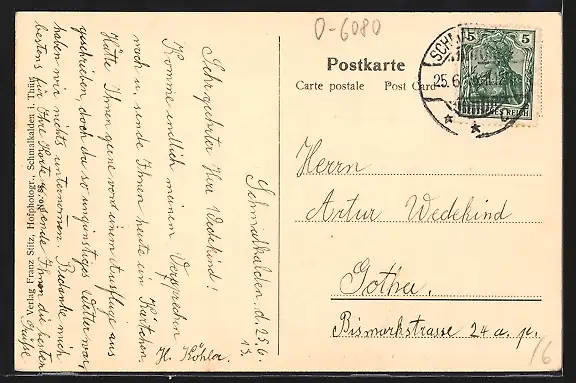 O-6080
Postkarte
Carte postale Post Card
SCHM
25.6.
5 5
ES REICH
Herrn
Artur Wedekind
Gotha.
Bismarkstrasse 24 a. p.
16
Schmalkalden. d. 25.6.
13.
Sehr geehrter Herr Wedekind!
Komme endlich meinem Versprechen
nach u. sende Ihnen heute ein Kärtchen.
Hätte Ihnen gerne vord einem Ausfluge aus
geschrieben, doch da so ungünstiges Wetter war,
haben wir nichts unternomen. Bedanke mich
bestens für Ihre Karte u. sende Ihnen die besten
Grüße
H. Köhler.
Verlag Franz Stitz, Hofphotogr., Schmalkalden i. Thür.